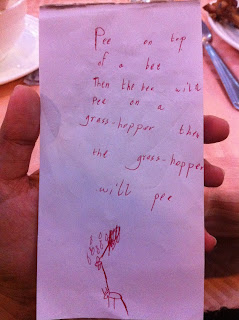 Pee on top
of a bee
Then the bee will
pee on a
grass-hopper then
the grass-hopper
will pee